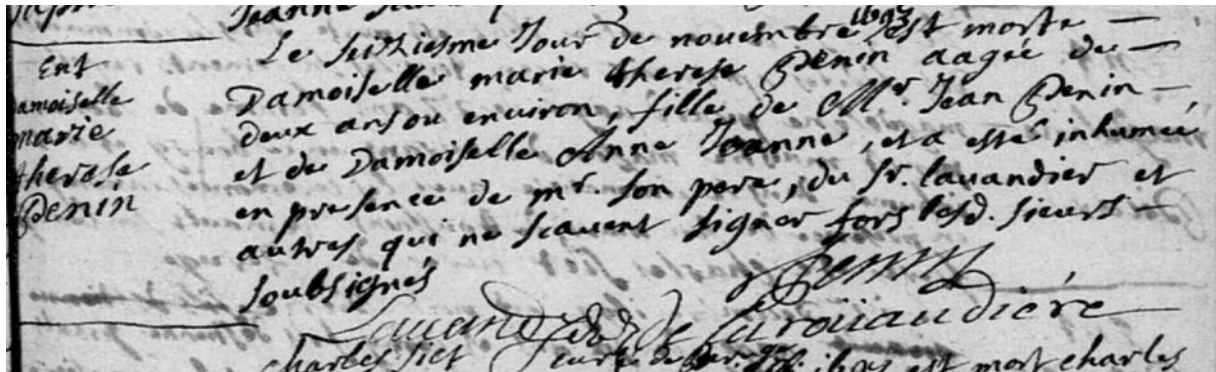 Jeanne
Ent
Damoiselle
marie
therese
Penin
Le seiziesme Jour de novembre 1693 est morte
Damoiselle marie therese Penin aagée de
deux ans ou environ, fille de Mr. Jean Penin
et de Damoiselle Anne Joanne, et a esté inhumée
en presence de mr. son pere, du Sr. lavandier et
autres qui ne scavent signer fors lesd. sieurs
soubsignés
Penin
Lavandier de Larouaudiére
est mort charles